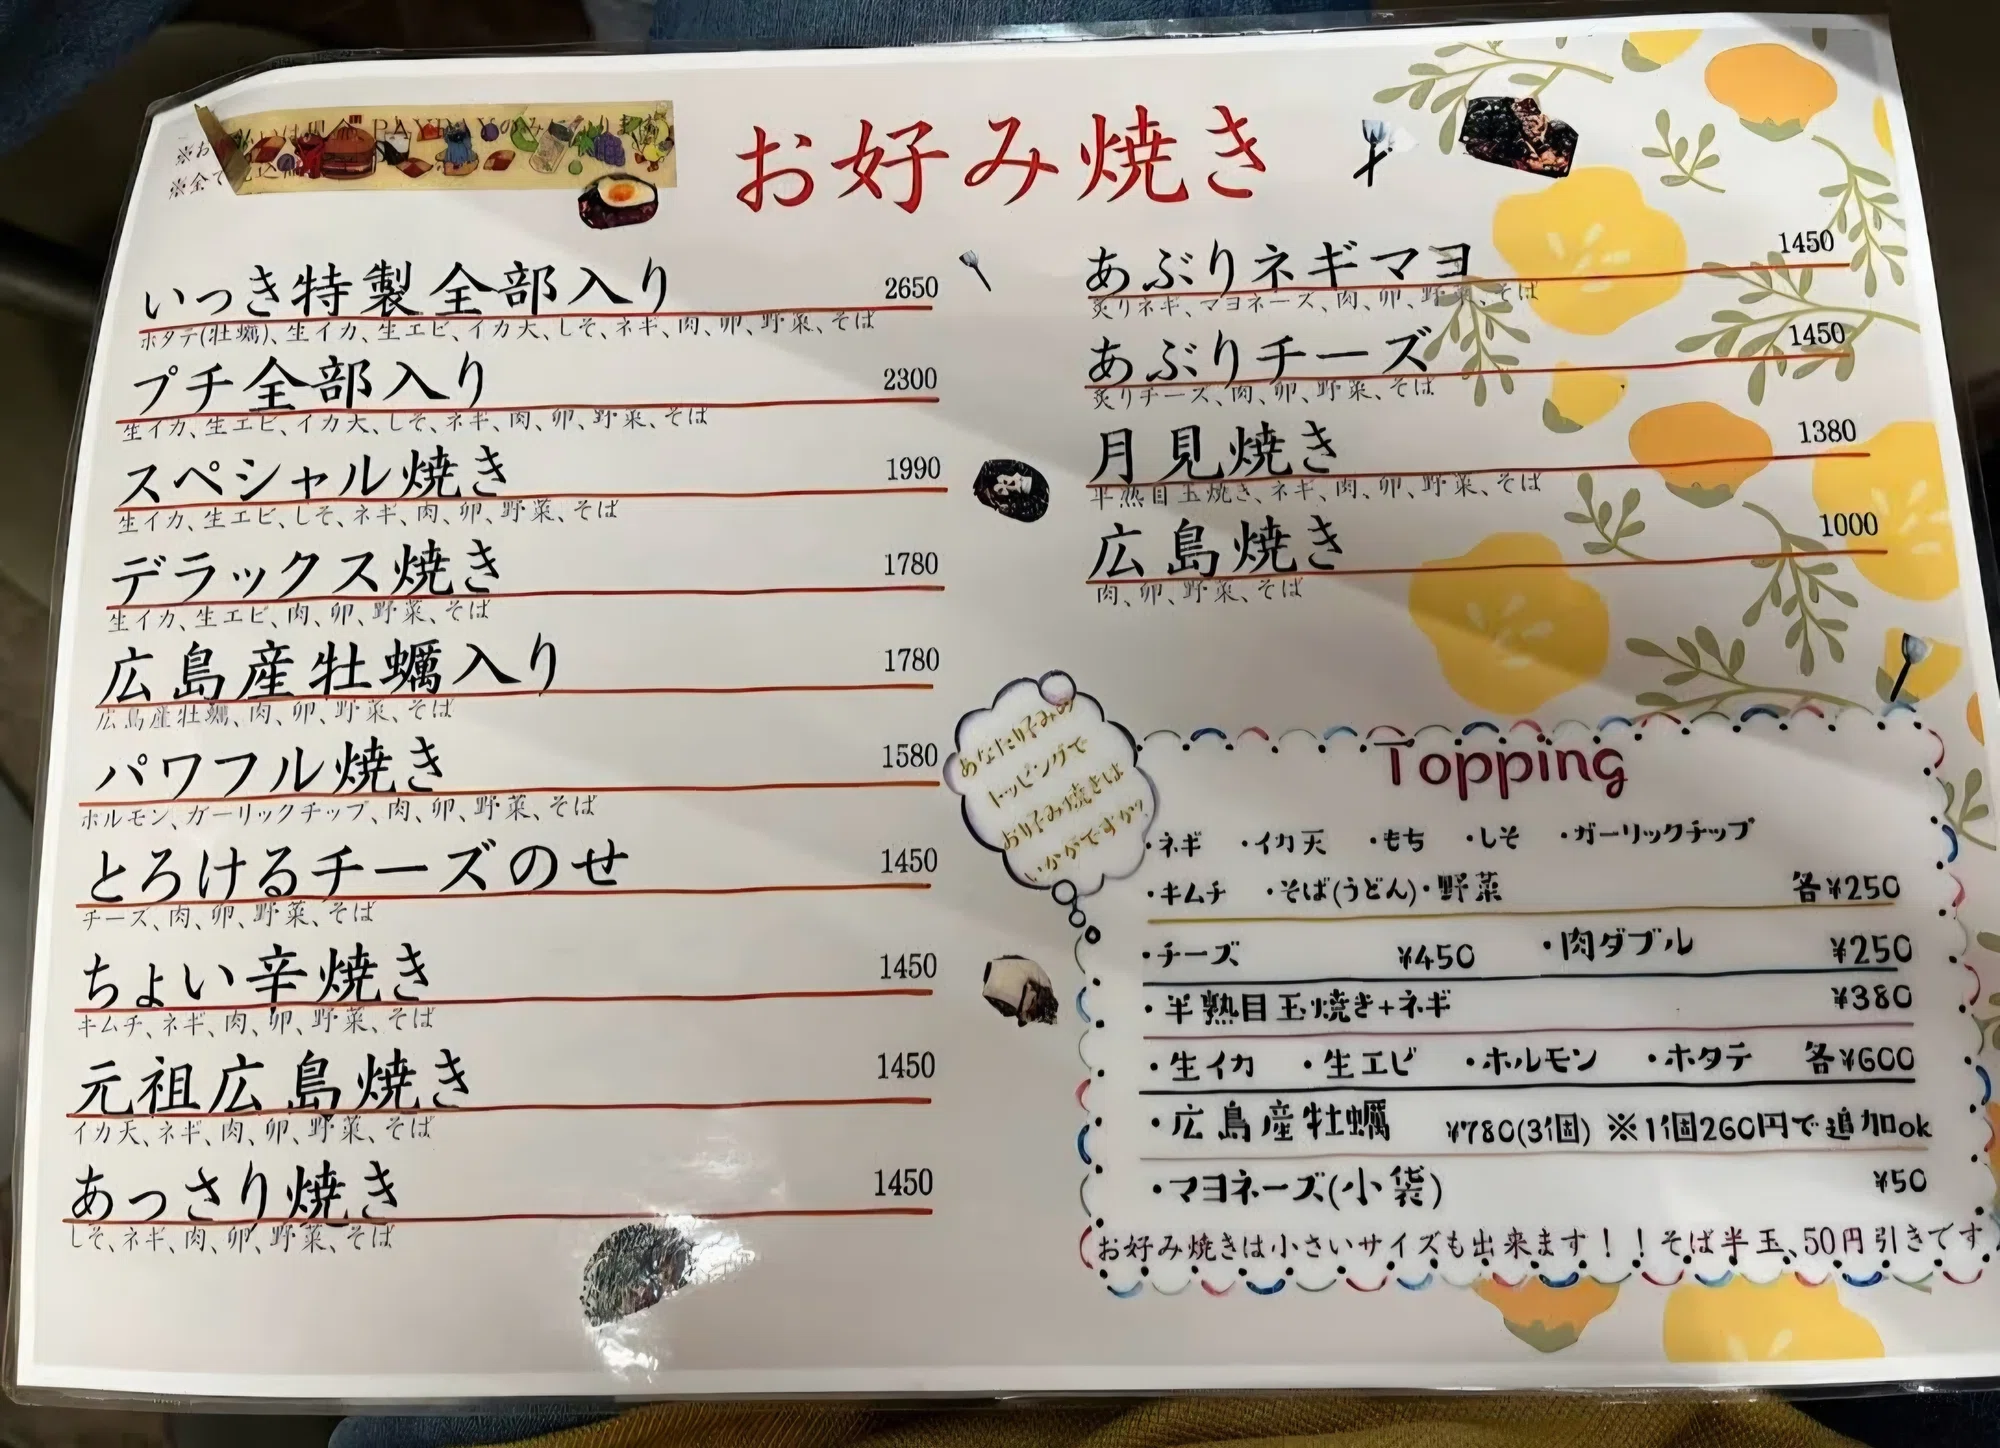 お好み焼き
いっき特製全部入り 2650
ホタテ(牡蠣)、生イカ、生エビ、イカ天、しそ、ネギ、肉、卵、野菜、そば
プチ全部入り 2300
生イカ、生エビ、イカ天、しそ、ネギ、肉、卵、野菜、そば
スペシャル焼き 1990
生イカ、生エビ、しそ、ネギ、肉、卵、野菜、そば
デラックス焼き 1780
生イカ、生エビ、肉、卵、野菜、そば
広島産牡蠣入り 1780
広島産牡蠣、肉、卵、野菜、そば
パワフル焼き 1580
ホルモン、ガーリックチップ、肉、卵、野菜、そば
とろけるチーズのせ 1450
チーズ、肉、卵、野菜、そば
ちょい辛焼き 1450
キムチ、ネギ、肉、卵、野菜、そば
元祖広島焼き 1450
イカ天、ネギ、肉、卵、野菜、そば
あっさり焼き 1450
しそ、ネギ、肉、卵、野菜、そば
あぶりネギマヨ 1450
炙りネギ、マヨネーズ、肉、卵、野菜、そば
あぶりチーズ 1450
炙りチーズ、肉、卵、野菜、そば
月見焼き 1380
半熟目玉焼き、ネギ、肉、卵、野菜、そば
広島焼き 1000
肉、卵、野菜、そば
あなたり好みの
トッピングで
お好み焼きは
いかがですか?
Topping
・ネギ ・イカ天 ・もち ・しそ ・ガーリックチップ
・キムチ ・そば(うどん)・野菜 各¥250
・チーズ ¥450 ・肉ダブル ¥250
・半熟目玉焼き+ネギ ¥380
・生イカ ・生エビ ・ホルモン ・ホタテ 各¥600
・広島産牡蠣 ¥780(3個) ※1個260円で追加ok
・マヨネーズ(小袋) ¥50
お好み焼きは小さいサイズも出来ます!!そば半玉、50円引きです